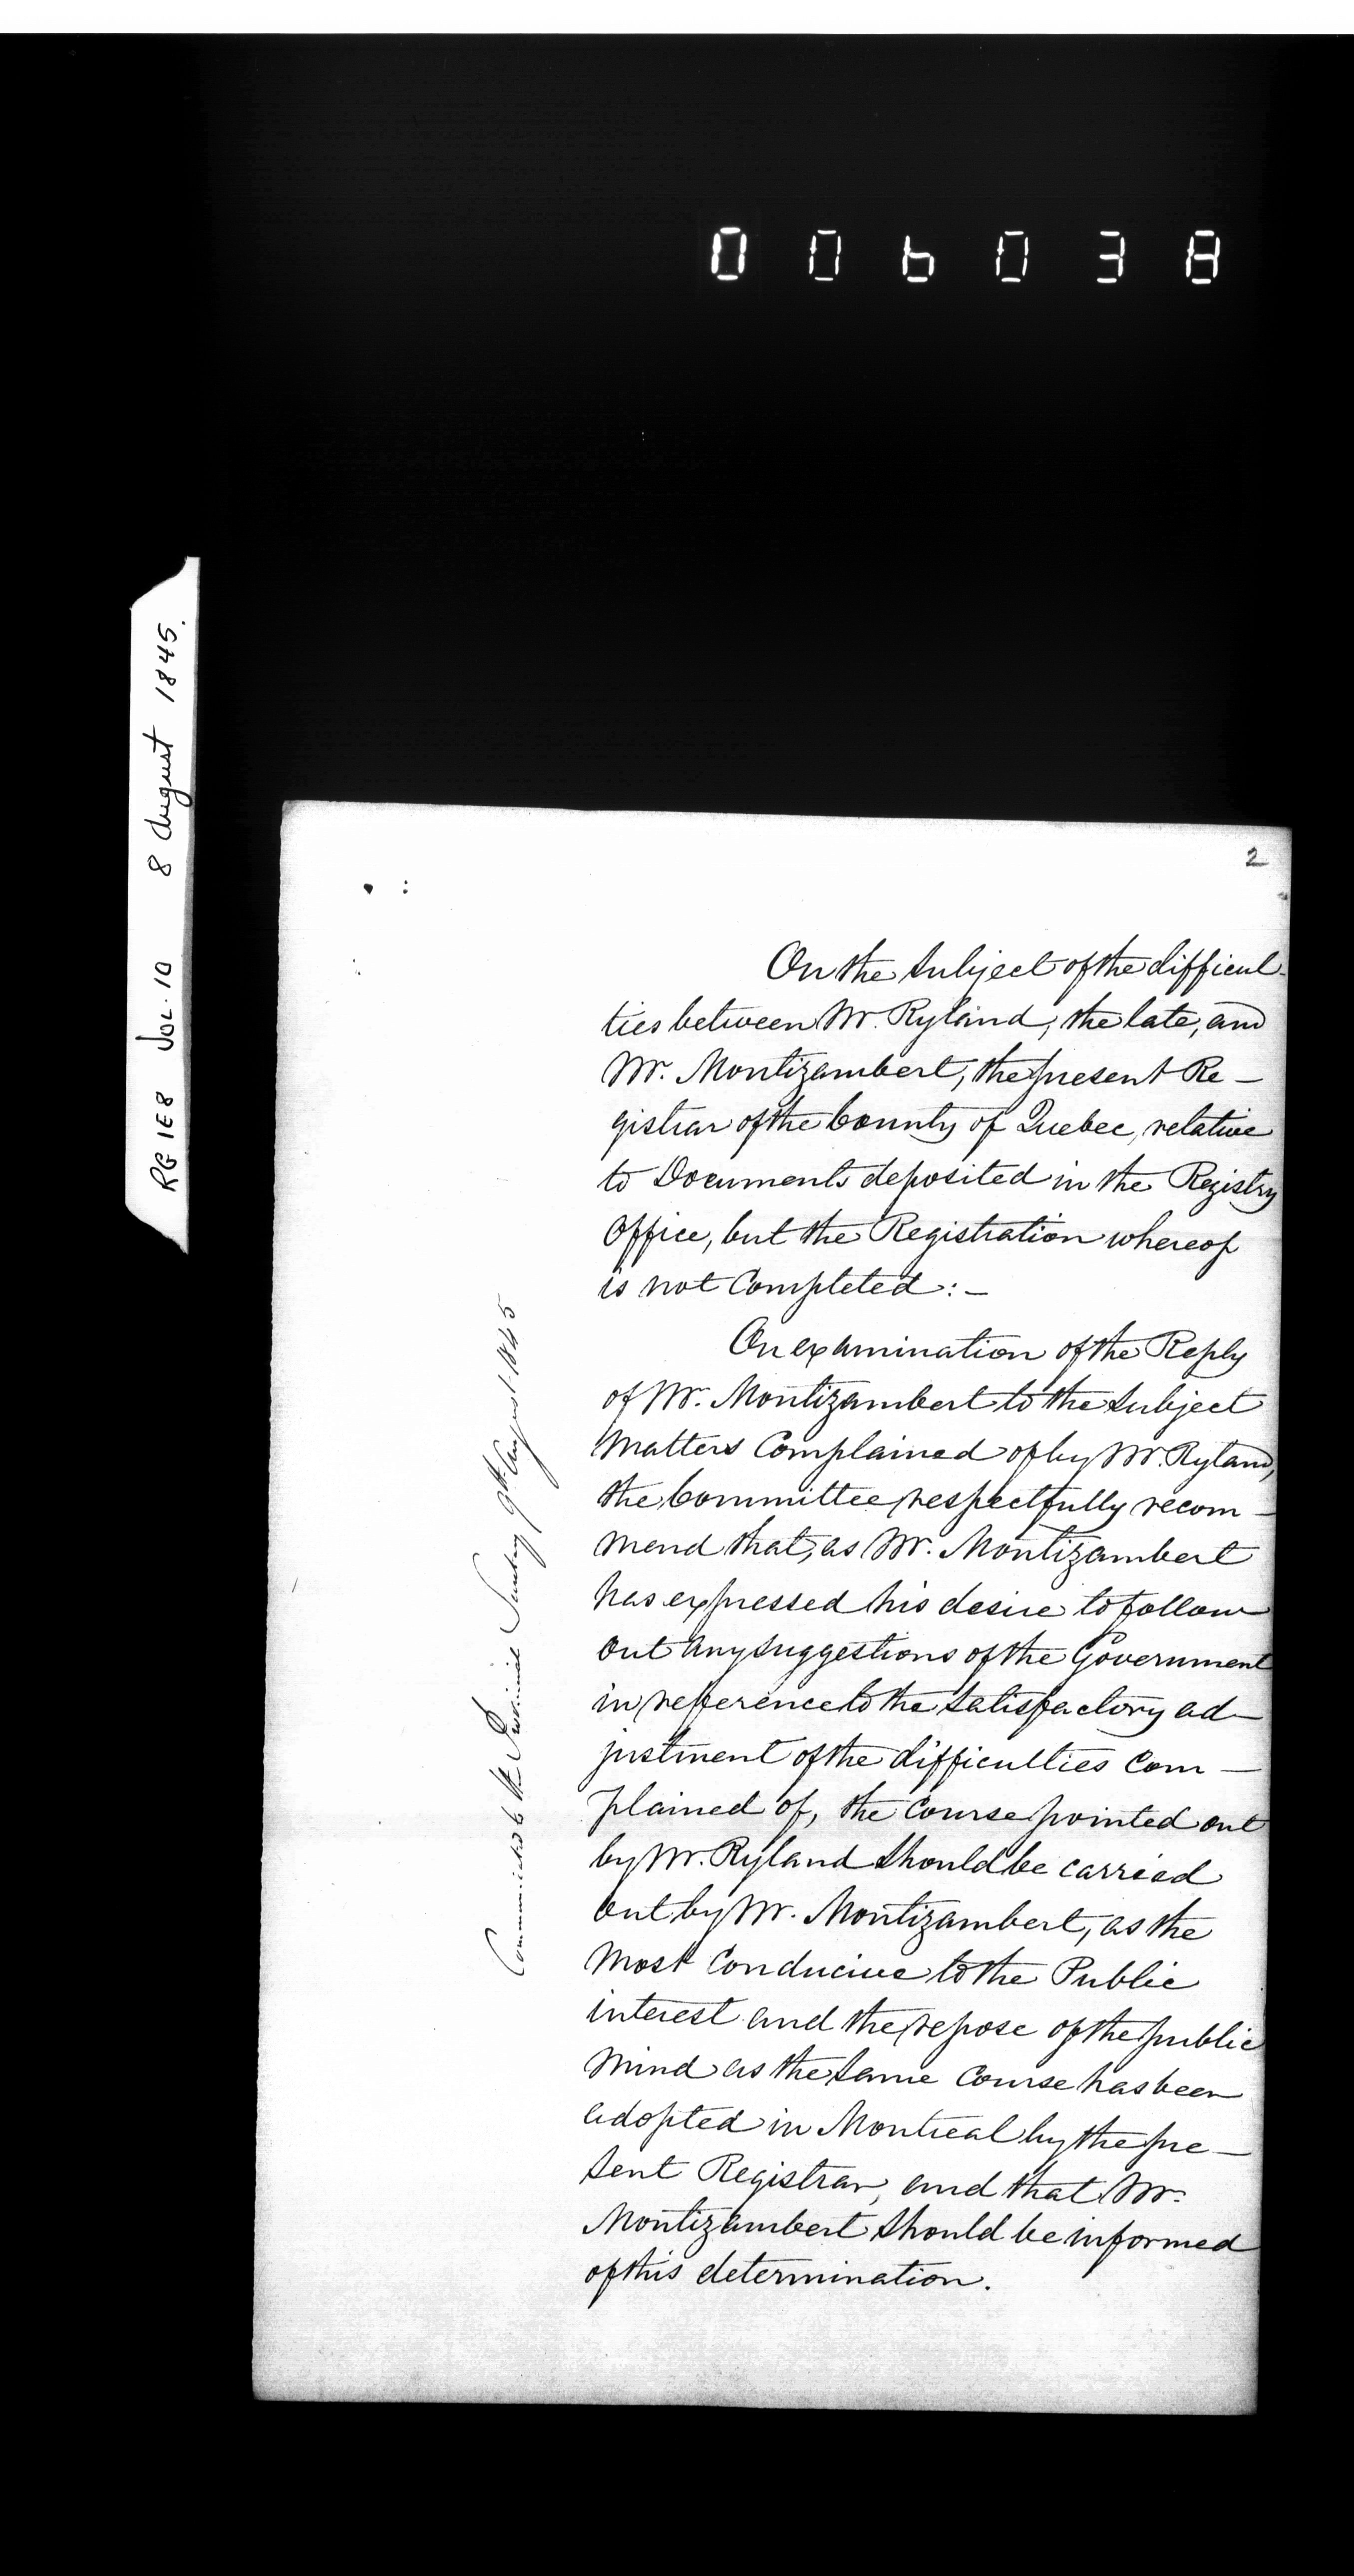 006038
RG 1E8 Vol. 10 8 August 1845.
2
On the Subject of the difficul-
ties between Mr. Ryland, the late, and
Mr. Montizambert, the present Re-
gistrar of the County of Quebec, relative
to Documents deposited in the Registry
Office, but the Registration whereof
is not Completed:-
On examination of the Reply
of Mr. Montizambert to the Subject
Matters Complained of by Mr. Ryland,
the Committee respectfully recom-
mend that, as Mr. Montizambert
has expressed his desire to follow
out any suggestions of the Government
in reference to the Satisfactory ad-
justment of the difficulties Com-
plained of, the Course pointed out
by Mr. Ryland Should be carried
out by Mr. Montizambert, as the
Most Conducive to the Public
interest and the repose of the public
Mind as the Same Course has been
adopted in Montreal by the pre-
sent Registrar, and that Mr.
Montizambert Should be informed
of this determination.
Communicated to the Provincial Secretary 9th August 1845